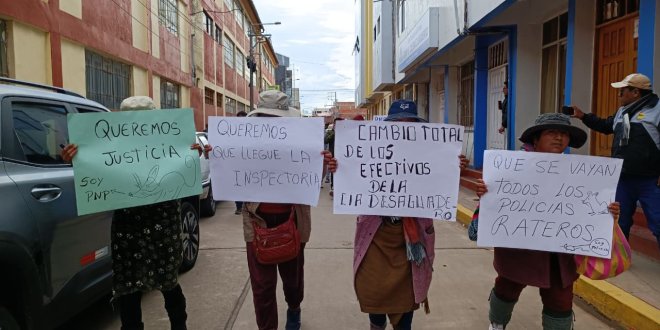 QUEREMOS
JUSTICIA
SOY
PNP
QUEREMOS
QUE LLEGUE LA
INSPECTORIA
CAMBIO TOTAL
DE LOS
EFECTIVOS
DE LA
CIA DESAGUADE-
RO
QUE SE VAYAN
TODOS LOS
POLICIAS
RATEROS
SOY